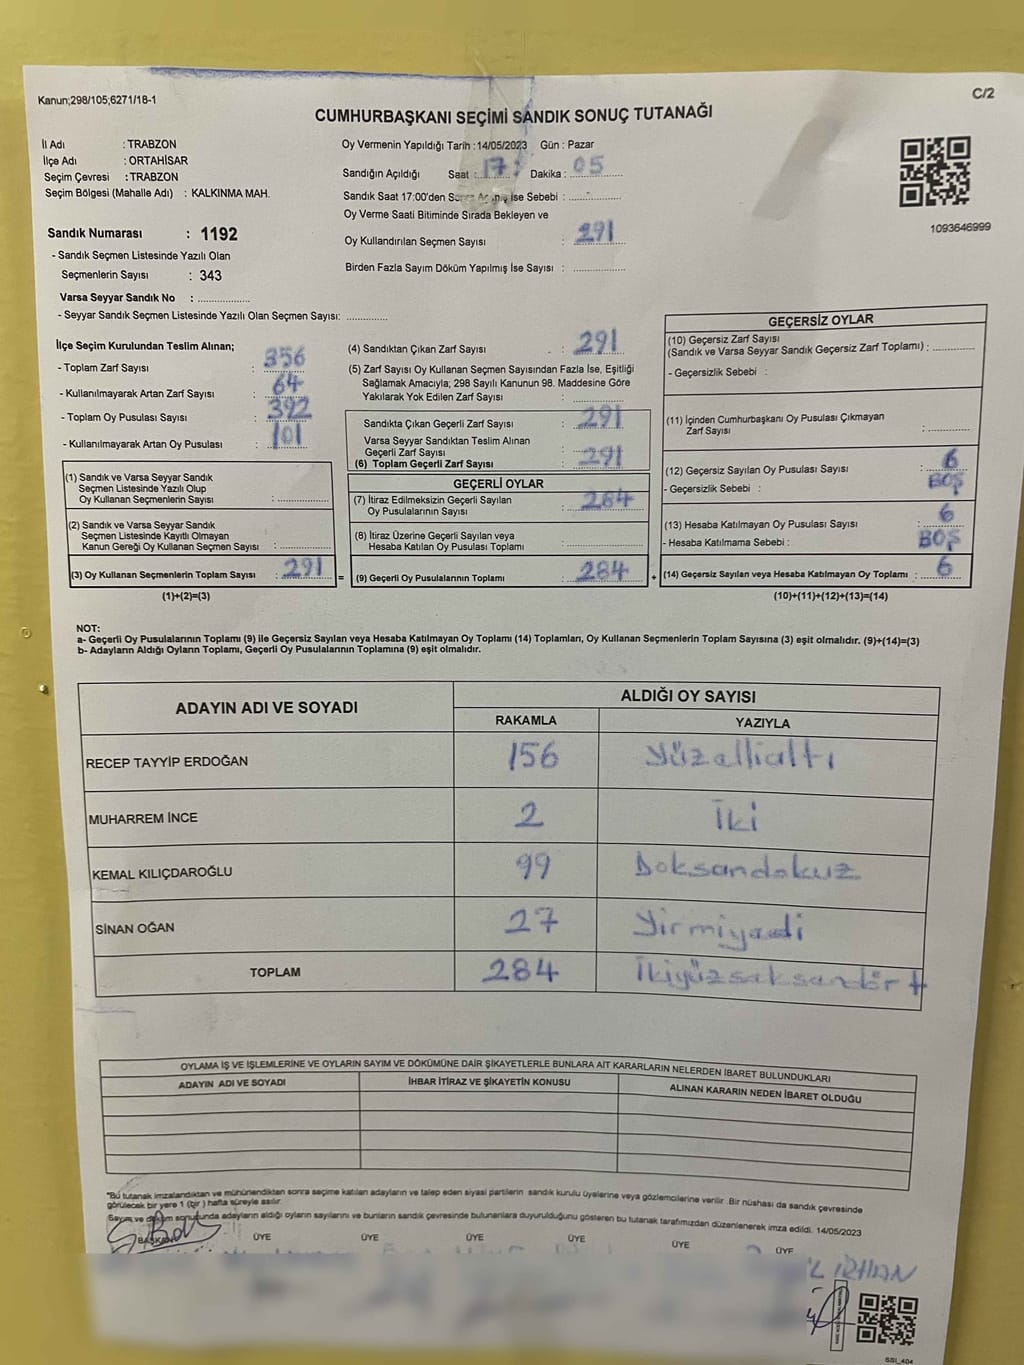 Kanun;298/105;6271/18-1
C/2
CUMHURBAŞKANI SEÇİMİ SANDIK SONUÇ TUTANAĞI
İl Adı : TRABZON
İlçe Adı : ORTAHİSAR
Seçim Çevresi : TRABZON
Seçim Bölgesi (Mahalle Adı) : KALKINMA MAH.
Sandık Numarası : 1192
- Sandık Seçmen Listesinde Yazılı Olan
Seçmenlerin Sayısı : 343
Varsa Seyyar Sandık No : ................
- Seyyar Sandık Seçmen Listesinde Yazılı Olan Seçmen Sayısı: ............
Oy Vermenin Yapıldığı Tarih :14/05/2023 Gün : Pazar
Sandığın Açıldığı Saat : 17 Dakika : 05
Sandık Saat 17:00'den İse Sebebi :
Oy Verme Saati Bitiminde Sırada Bekleyen ve
Oy Kullandırılan Seçmen Sayısı : 291
Birden Fazla Sayım Döküm Yapılmış İse Sayısı :
1093646999
İlçe Seçim Kurulundan Teslim Alınan;
- Toplam Zarf Sayısı : 356
- Kullanılmayarak Artan Zarf Sayısı : 64
- Toplam Oy Pusulası Sayısı : 392
- Kullanılmayarak Artan Oy Pusulası : 101
(1) Sandık ve Varsa Seyyar Sandık
Seçmen Listesinde Yazılı Olup
Oy Kullanan Seçmenlerin Sayısı :
(2) Sandık ve Varsa Seyyar Sandık
Seçmen Listesinde Kayıtlı Olmayan
Kanun Gereği Oy Kullanan Seçmen Sayısı :
(3) Oy Kullanan Seçmenlerin Toplam Sayısı : 291
(1)+(2)=(3)
(4) Sandıktan Çıkan Zarf Sayısı : 291
(5) Zarf Sayısı Oy Kullanan Seçmen Sayısından Fazla İse, Eşitliği
Sağlamak Amacıyla; 298 Sayılı Kanunun 98. Maddesine Göre
Yakılarak Yok Edilen Zarf Sayısı :
Sandıkta Çıkan Geçerli Zarf Sayısı : 291
Varsa Seyyar Sandıktan Teslim Alınan
Geçerli Zarf Sayısı :
(6) Toplam Geçerli Zarf Sayısı : 291
GEÇERLİ OYLAR
(7) İtiraz Edilmeksizin Geçerli Sayılan
Oy Pusulalarının Sayısı : 284
(8) İtiraz Üzerine Geçerli Sayılan veya
Hesaba Katılan Oy Pusulası Toplamı :
= (9) Geçerli Oy Pusulalarının Toplamı : 284 +
GEÇERSİZ OYLAR
(10) Geçersiz Zarf Sayısı
(Sandık ve Varsa Seyyar Sandık Geçersiz Zarf Toplamı) :
- Geçersizlik Sebebi :
(11) İçinden Cumhurbaşkanı Oy Pusulası Çıkmayan
Zarf Sayısı :
(12) Geçersiz Sayılan Oy Pusulası Sayısı : 6
- Geçersizlik Sebebi : BOŞ
(13) Hesaba Katılmayan Oy Pusulası Sayısı : 6
- Hesaba Katılmama Sebebi : BOŞ
(14) Geçersiz Sayılan veya Hesaba Katılmayan Oy Toplamı : 6
(10)+(11)+(12)+(13)=(14)
NOT:
a- Geçerli Oy Pusulalarının Toplamı (9) ile Geçersiz Sayılan veya Hesaba Katılmayan Oy Toplamı (14) Toplamları, Oy Kullanan Seçmenlerin Toplam Sayısına (3) eşit olmalıdır. (9)+(14)=(3)
b- Adayların Aldığı Oyların Toplamı, Geçerli Oy Pusulalarının Toplamına (9) eşit olmalıdır.
ADAYIN ADI VE SOYADI ALDIĞI OY SAYISI
RAKAMLA YAZIYLA
RECEP TAYYİP ERDOĞAN 156 Yüzellialtı
MUHARREM İNCE 2 İki
KEMAL KILIÇDAROĞLU 99 Doksandokuz
SİNAN OĞAN 27 Yirmiyedi
TOPLAM 284 İkiyüzseksendört
OYLAMA İŞ VE İŞLEMLERİNE VE OYLARIN SAYIM VE DÖKÜMÜNE DAİR ŞİKAYETLERLE BUNLARA AİT KARARLARIN NELERDEN İBARET BULUNDUKLARI
ADAYIN ADI VE SOYADI İHBAR İTİRAZ VE ŞİKAYETİN KONUSU ALINAN KARARIN NEDEN İBARET OLDUĞU
"Bu tutanak imzalandıktan ve mühürlendikten sonra seçime katılan adayların ve talep eden siyasi partilerin sandık kurulu üyelerine veya gözlemcilerine verilir. Bir nüshası da sandık çevresinde
görülecek bir yere 1 (bir ) hafta süreyle asılır.
Sayım ve döküm sonucunda adayların aldığı oyların sayılarını ve bunların sandık çevresinde bulunanlara duyurulduğunu gösteren bu tutanak tarafımızdan düzenlenerek imza edildi. 14/05/2023
BAŞKAN ÜYE ÜYE ÜYE ÜYE ÜYE ÜYE
SSI_404